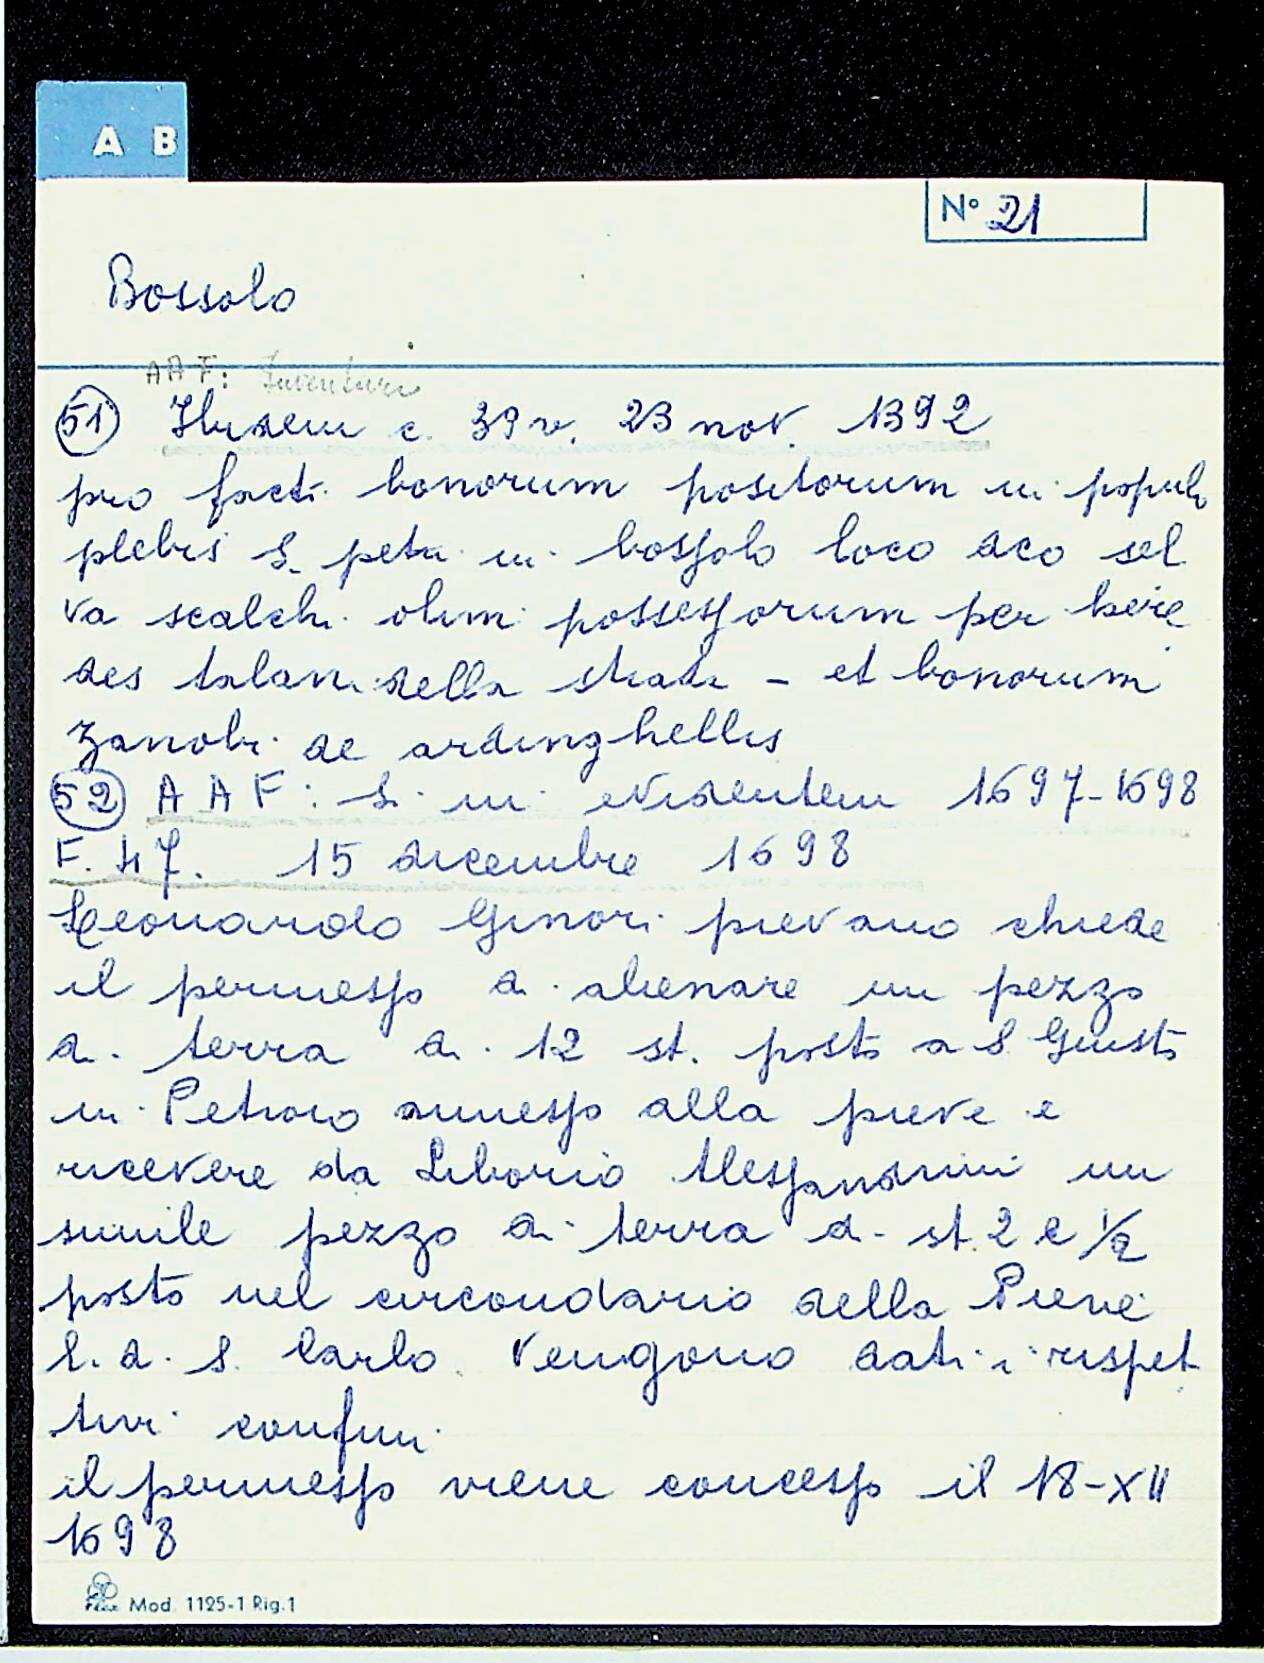 A B
N° 21
Bossolo
AAF: Inventari
51 Ibidem c. 39 v. 23 nov. 1392
pro facti bonorum positorum in populo
plebis S. petri in bossolo loco dco sel
va scalchi olim possessorum per here
des talani della strada - et bonorum
zanobi de ardinghellis
52 AAF: S. in evidentem 1697-1698
F. 47. 15 dicembre 1698
Leonardo Ginori pievano chiede
il permesso di alienare un pezzo
di terra di 12 st. posto a S. Giusto
in Petroio annesso alla pieve e
ricevere da Liborio Alessandrini un
simile pezzo di terra di st. 2 e 1/2
posto nel circondario della Pieve
l. d. S. Carlo. Vengono dati i rispet
tivi confini
il permesso viene concesso il 18-XII
1698
Mod. 1125-1 Rig. 1